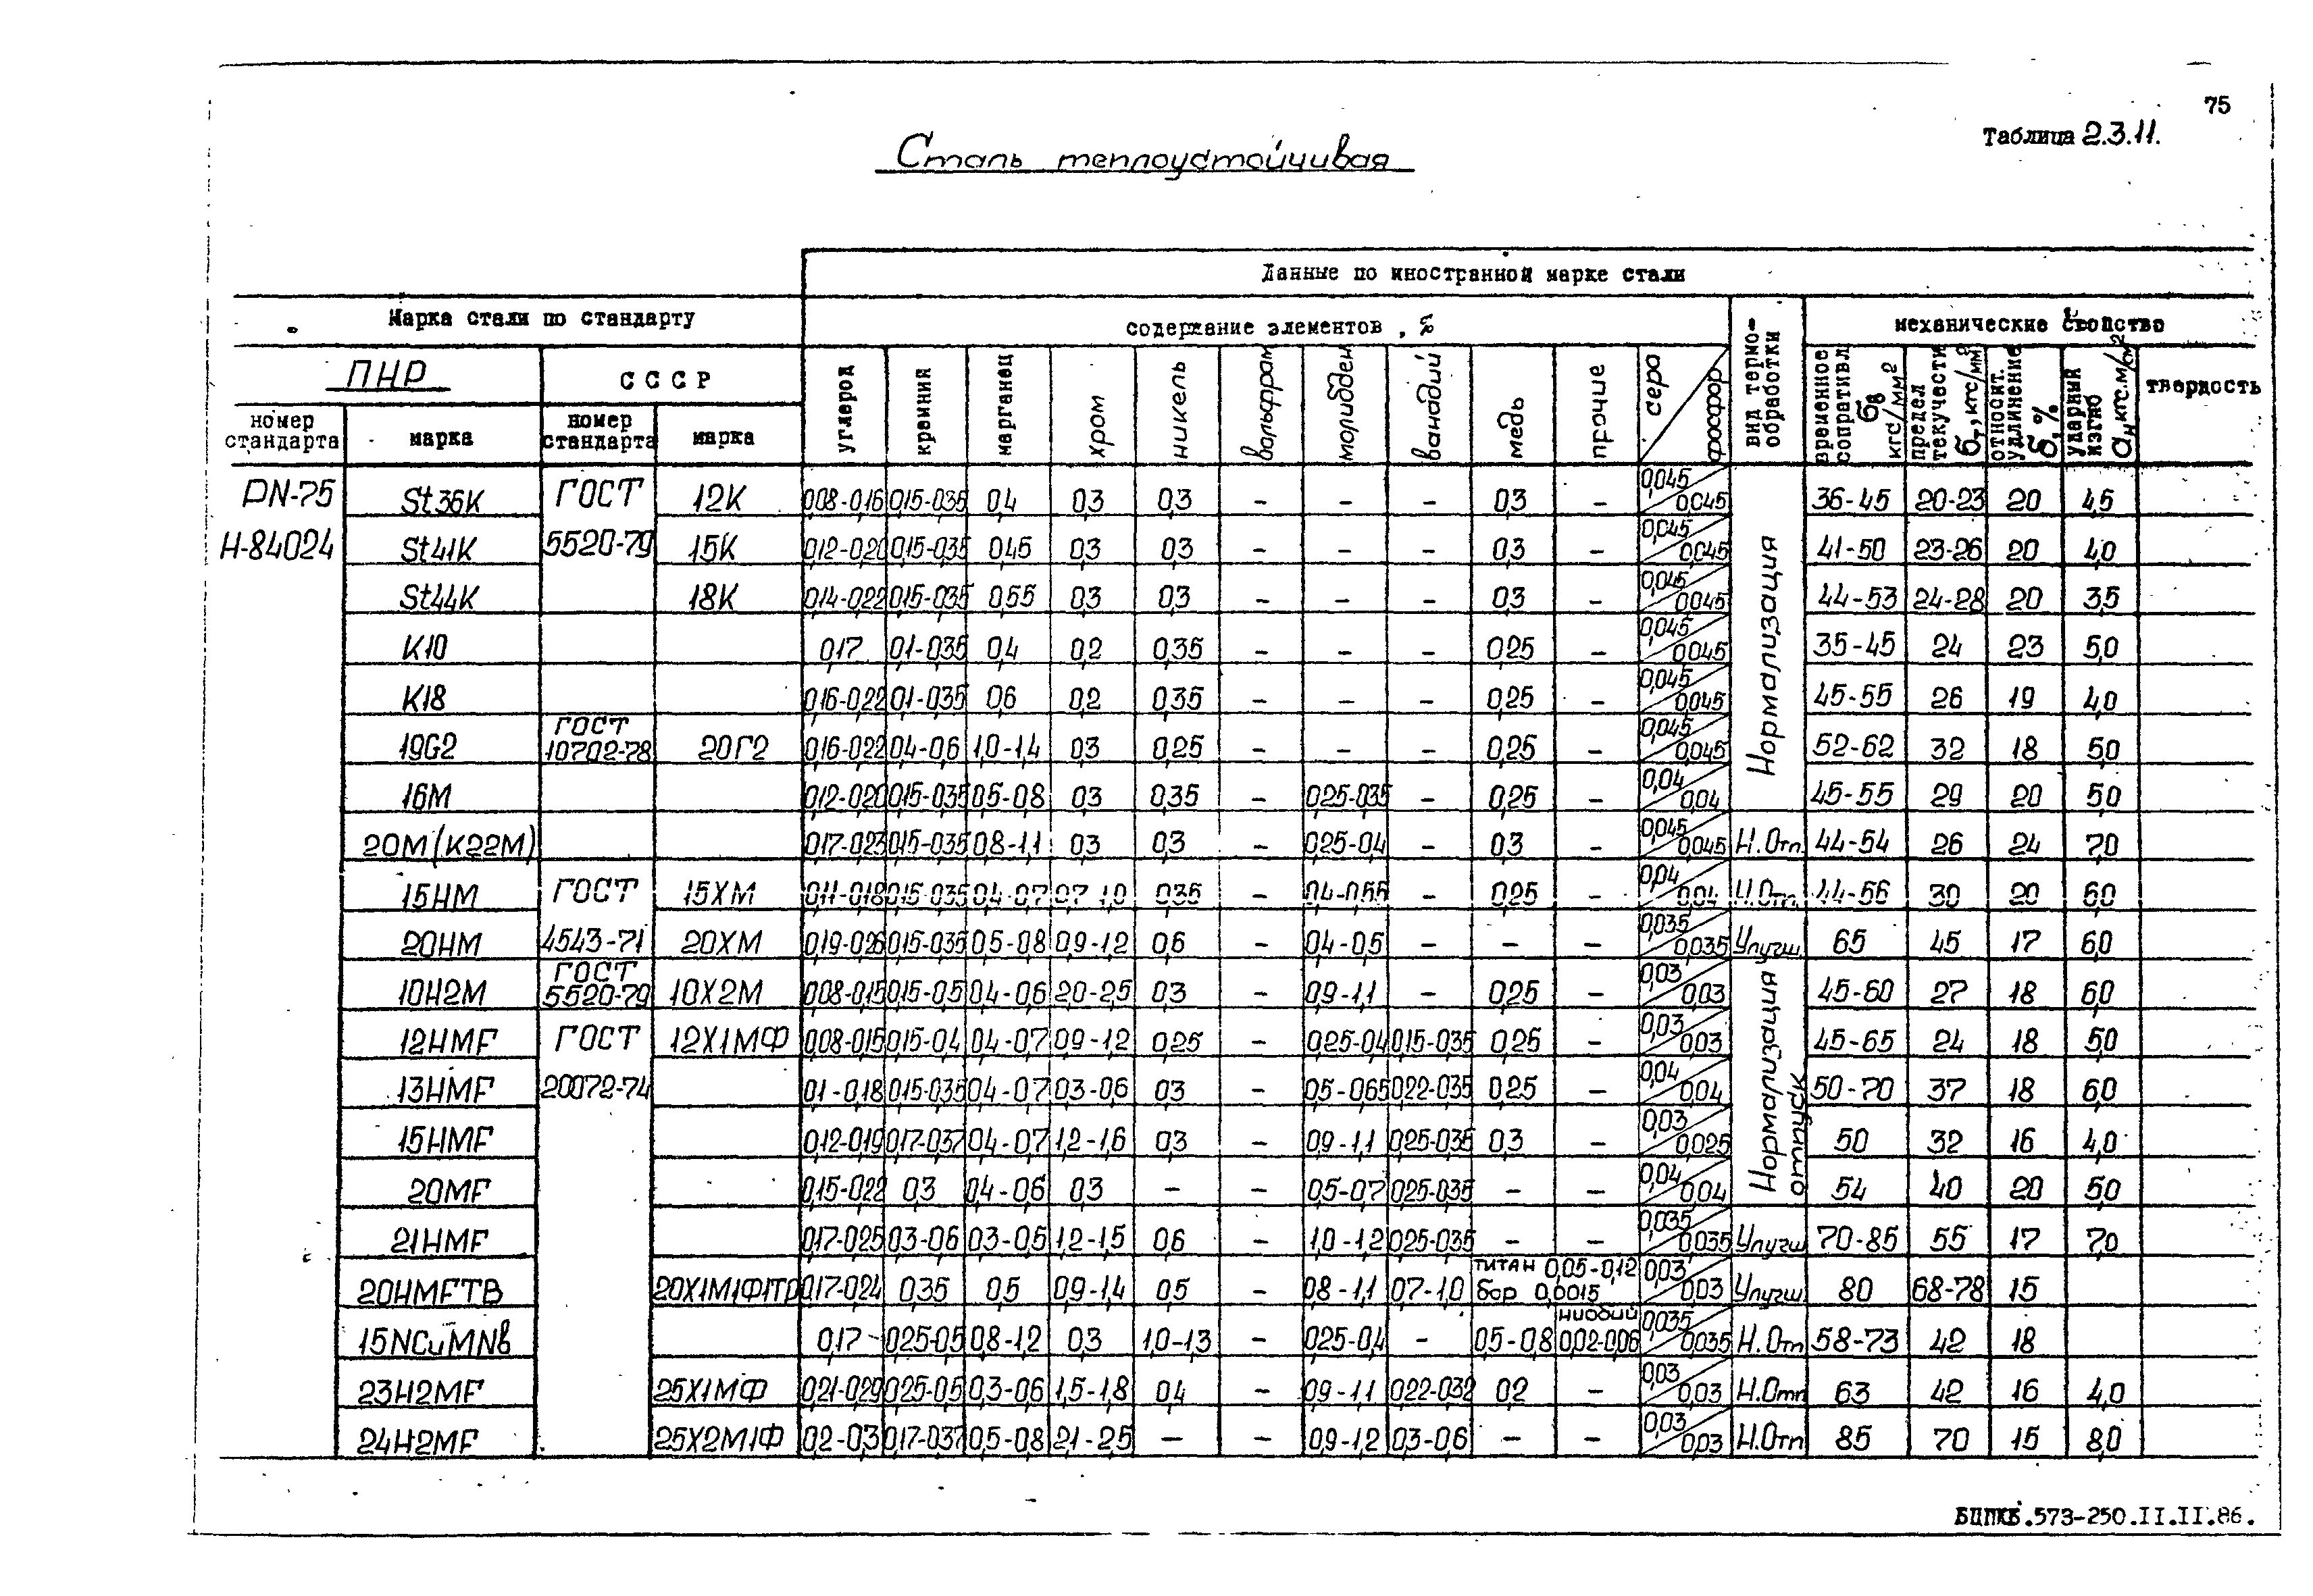 75
Таблица 2.3.11.
Сталь теплоустойчивая
Данные по иностранной марке стали
Марка стали по стандарту
содержание элементов, %
вид термо-обработки
механические свойство
ПНР
СССР
номер стандарта
марка
номер стандарта
марка
углерод
кремний
марганец
хром
никель
вольфрам
молибден
ванадий
медь
прочие
сера
фосфор
временное сопративл. σв кгс/мм²
предел текучести σт, кгс/мм²
относит. удлинение δ, %
ударный изгиб ан кгс.м/см²
твердость
PN-75 St36K ГОСТ 12К 0,08-0,16 0,15-0,35 0,4 0,3 0,3 - - - 0,3 - 0,045/0,045 36-45 20-23 20 4,5
Н-84024 St41K 5520-79 15К 0,12-0,20 0,15-0,35 0,45 0,3 0,3 - - - 0,3 - 0,045/0,045 41-50 23-26 20 4,0
St44K 18К 0,14-0,22 0,15-0,35 0,55 0,3 0,3 - - - 0,3 - 0,045/0,045 44-53 24-28 20 3,5
Нормализация
K10 0,17 0,1-0,35 0,4 0,2 0,35 - - - 0,25 - 0,045/0,045 35-45 24 23 5,0
K18 0,16-0,22 0,1-0,35 0,6 0,2 0,35 - - - 0,25 - 0,045/0,045 45-55 26 19 4,0
19G2 ГОСТ 10702-78 20Г2 0,16-0,22 0,4-0,6 1,0-1,4 0,3 0,25 - - - 0,25 - 0,045/0,045 52-62 32 18 5,0
16M 0,12-0,20 0,15-0,35 0,5-0,8 0,3 0,35 - 0,25-0,35 - 0,25 - 0,04/0,04 45-55 29 20 5,0
20M (K22M) 0,17-0,23 0,15-0,35 0,8-1,1 0,3 0,3 - 0,25-0,4 - 0,3 - 0,045/0,045 Н.Отп. 44-54 26 24 7,0
15HM ГОСТ 15ХМ 0,11-0,18 0,15-0,35 0,4-0,7 0,7-1,0 0,35 - 0,4-0,55 - 0,25 - 0,04/0,04 Н.Отп. 44-56 30 20 6,0
20HM 4543-71 20ХМ 0,19-0,26 0,15-0,35 0,5-0,8 0,9-1,2 0,6 - 0,4-0,5 - - - 0,035/0,035 Улучш. 65 45 17 6,0
10H2M ГОСТ 5520-79 10Х2М 0,08-0,15 0,15-0,5 0,4-0,6 2,0-2,5 0,3 - 0,9-1,1 - 0,25 - 0,03/0,03 45-60 27 18 6,0
12HMF ГОСТ 12Х1МФ 0,08-0,15 0,15-0,4 0,4-0,7 0,9-1,2 0,25 - 0,25-0,4 0,15-0,35 0,25 - 0,03/0,03 45-65 24 18 5,0
Нормализация отпуск
13HMF 20072-74 0,1-0,18 0,15-0,35 0,4-0,7 0,3-0,6 0,3 - 0,5-0,65 0,22-0,35 0,25 - 0,04/0,04 50-70 37 18 6,0
15HMF 0,12-0,19 0,17-0,37 0,4-0,7 1,2-1,6 0,3 - 0,9-1,1 0,25-0,35 0,3 - 0,03/0,025 50 32 16 4,0
20MF 0,15-0,22 0,3 0,4-0,6 0,3 - - 0,5-0,7 0,25-0,35 - - 0,04/0,04 54 40 20 5,0
21HMF 0,17-0,25 0,3-0,6 0,3-0,5 1,2-1,5 0,6 - 1,0-1,2 0,25-0,35 - - 0,035/0,035 Улучш 70-85 55 17 7,0
20HMFTB 20Х1М1Ф1ТР 0,17-0,24 0,35 0,5 0,9-1,4 0,5 - 0,8-1,1 0,7-1,0 титан 0,05-0,12 бор 0,0015 0,03/0,03 Улучш. 80 68-78 15
15NCuMNb 0,17 0,25-0,5 0,8-1,2 0,3 1,0-1,3 - 0,25-0,4 - 0,5-0,8 ниобий 0,02-0,06 0,035/0,035 Н.Отп 58-73 42 18
23H2MF 25Х1МФ 0,21-0,29 0,25-0,5 0,3-0,6 1,5-1,8 0,4 - 0,9-1,1 0,22-0,32 0,2 - 0,03/0,03 Н.Отп 63 42 16 4,0
24H2MF 25Х2М1Ф 0,2-0,3 0,17-0,37 0,5-0,8 2,1-2,5 - - 0,9-1,2 0,3-0,6 - - 0,03/0,03 Н.Отп 85 70 15 8,0
БППКБ.573-250.II.II.86.